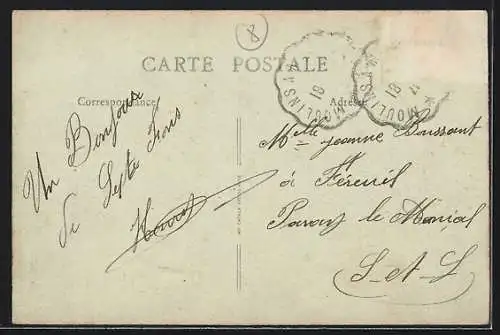 8
CARTE POSTALE
Correspondance
Adresse
MOULINS A M
18
MOULINS A M
18
Un Bonjour
de Sept Fons
Henry
Melle Jeanne Boussant
à Féreuil
Paray le Monial
S-et-L